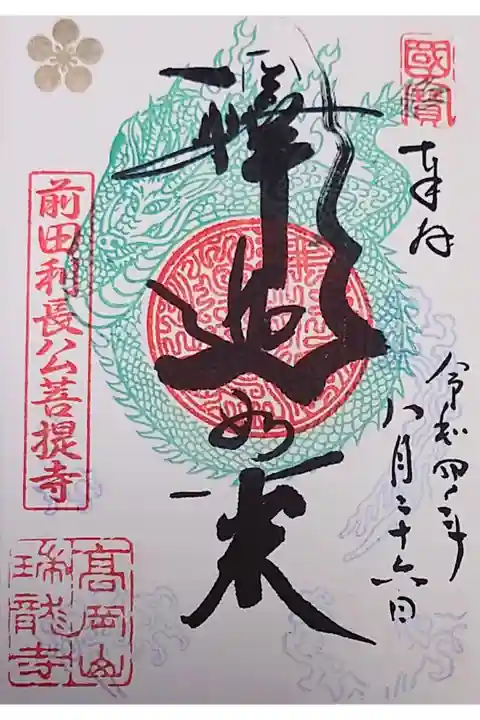 國寶
奉拝
令和四年
八月二十六日
釋迦如来
前田利長公菩提寺
高岡山
瑞龍寺